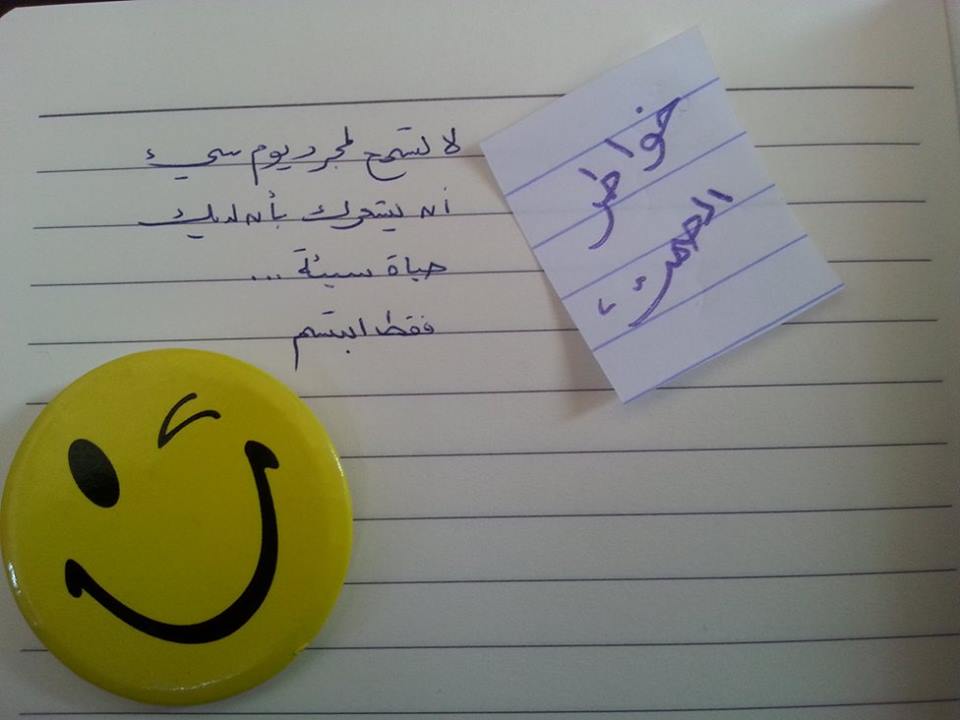 لا تسمح لمجرد يوم سيء
أن يشعرك بأن لديك
حياة سيئة ...
فقط ابتسم
خواطر
الصمت